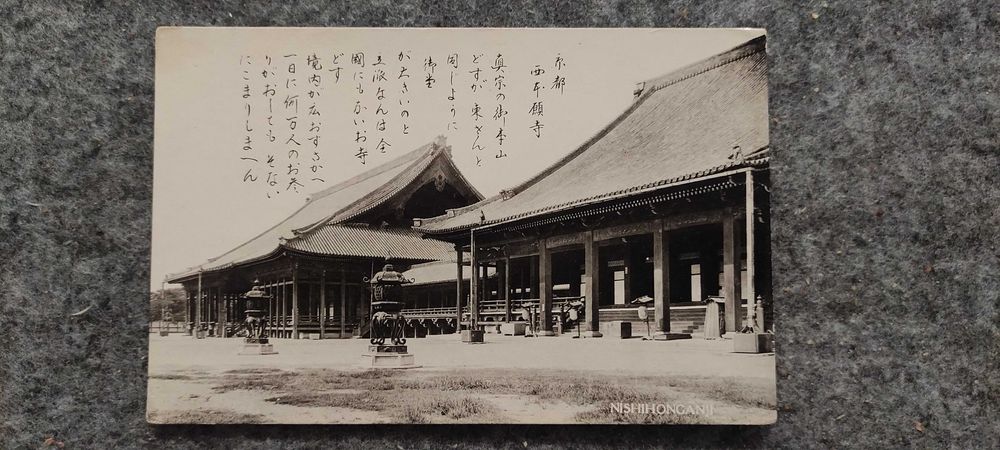 京都
西本願寺
真宗の御本山
どすが東さんと
同じように
御堂
が大きいのと
立派なんは全
國にもないお寺
どす
境内が広おすさかへ
一日に何万人のお参
りがおしても そない
にこまりしまへん
NISHIHONGANJI